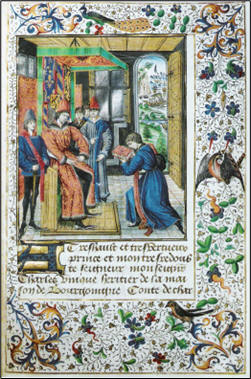 A Treshault et tresvertueux
prince et mon tresredoub
te seigneur monseigneur
Charles unique heritier de la mai
son de Bourgoingne Conte de char